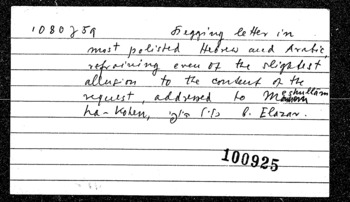 1080 J 59 Begging letter in
most polished Hebrew and Arabic,
refraining even of the slightest
allusion to the content of the
request, addressed to Meshullam
ha-Kohen, b. Elazar.
100925